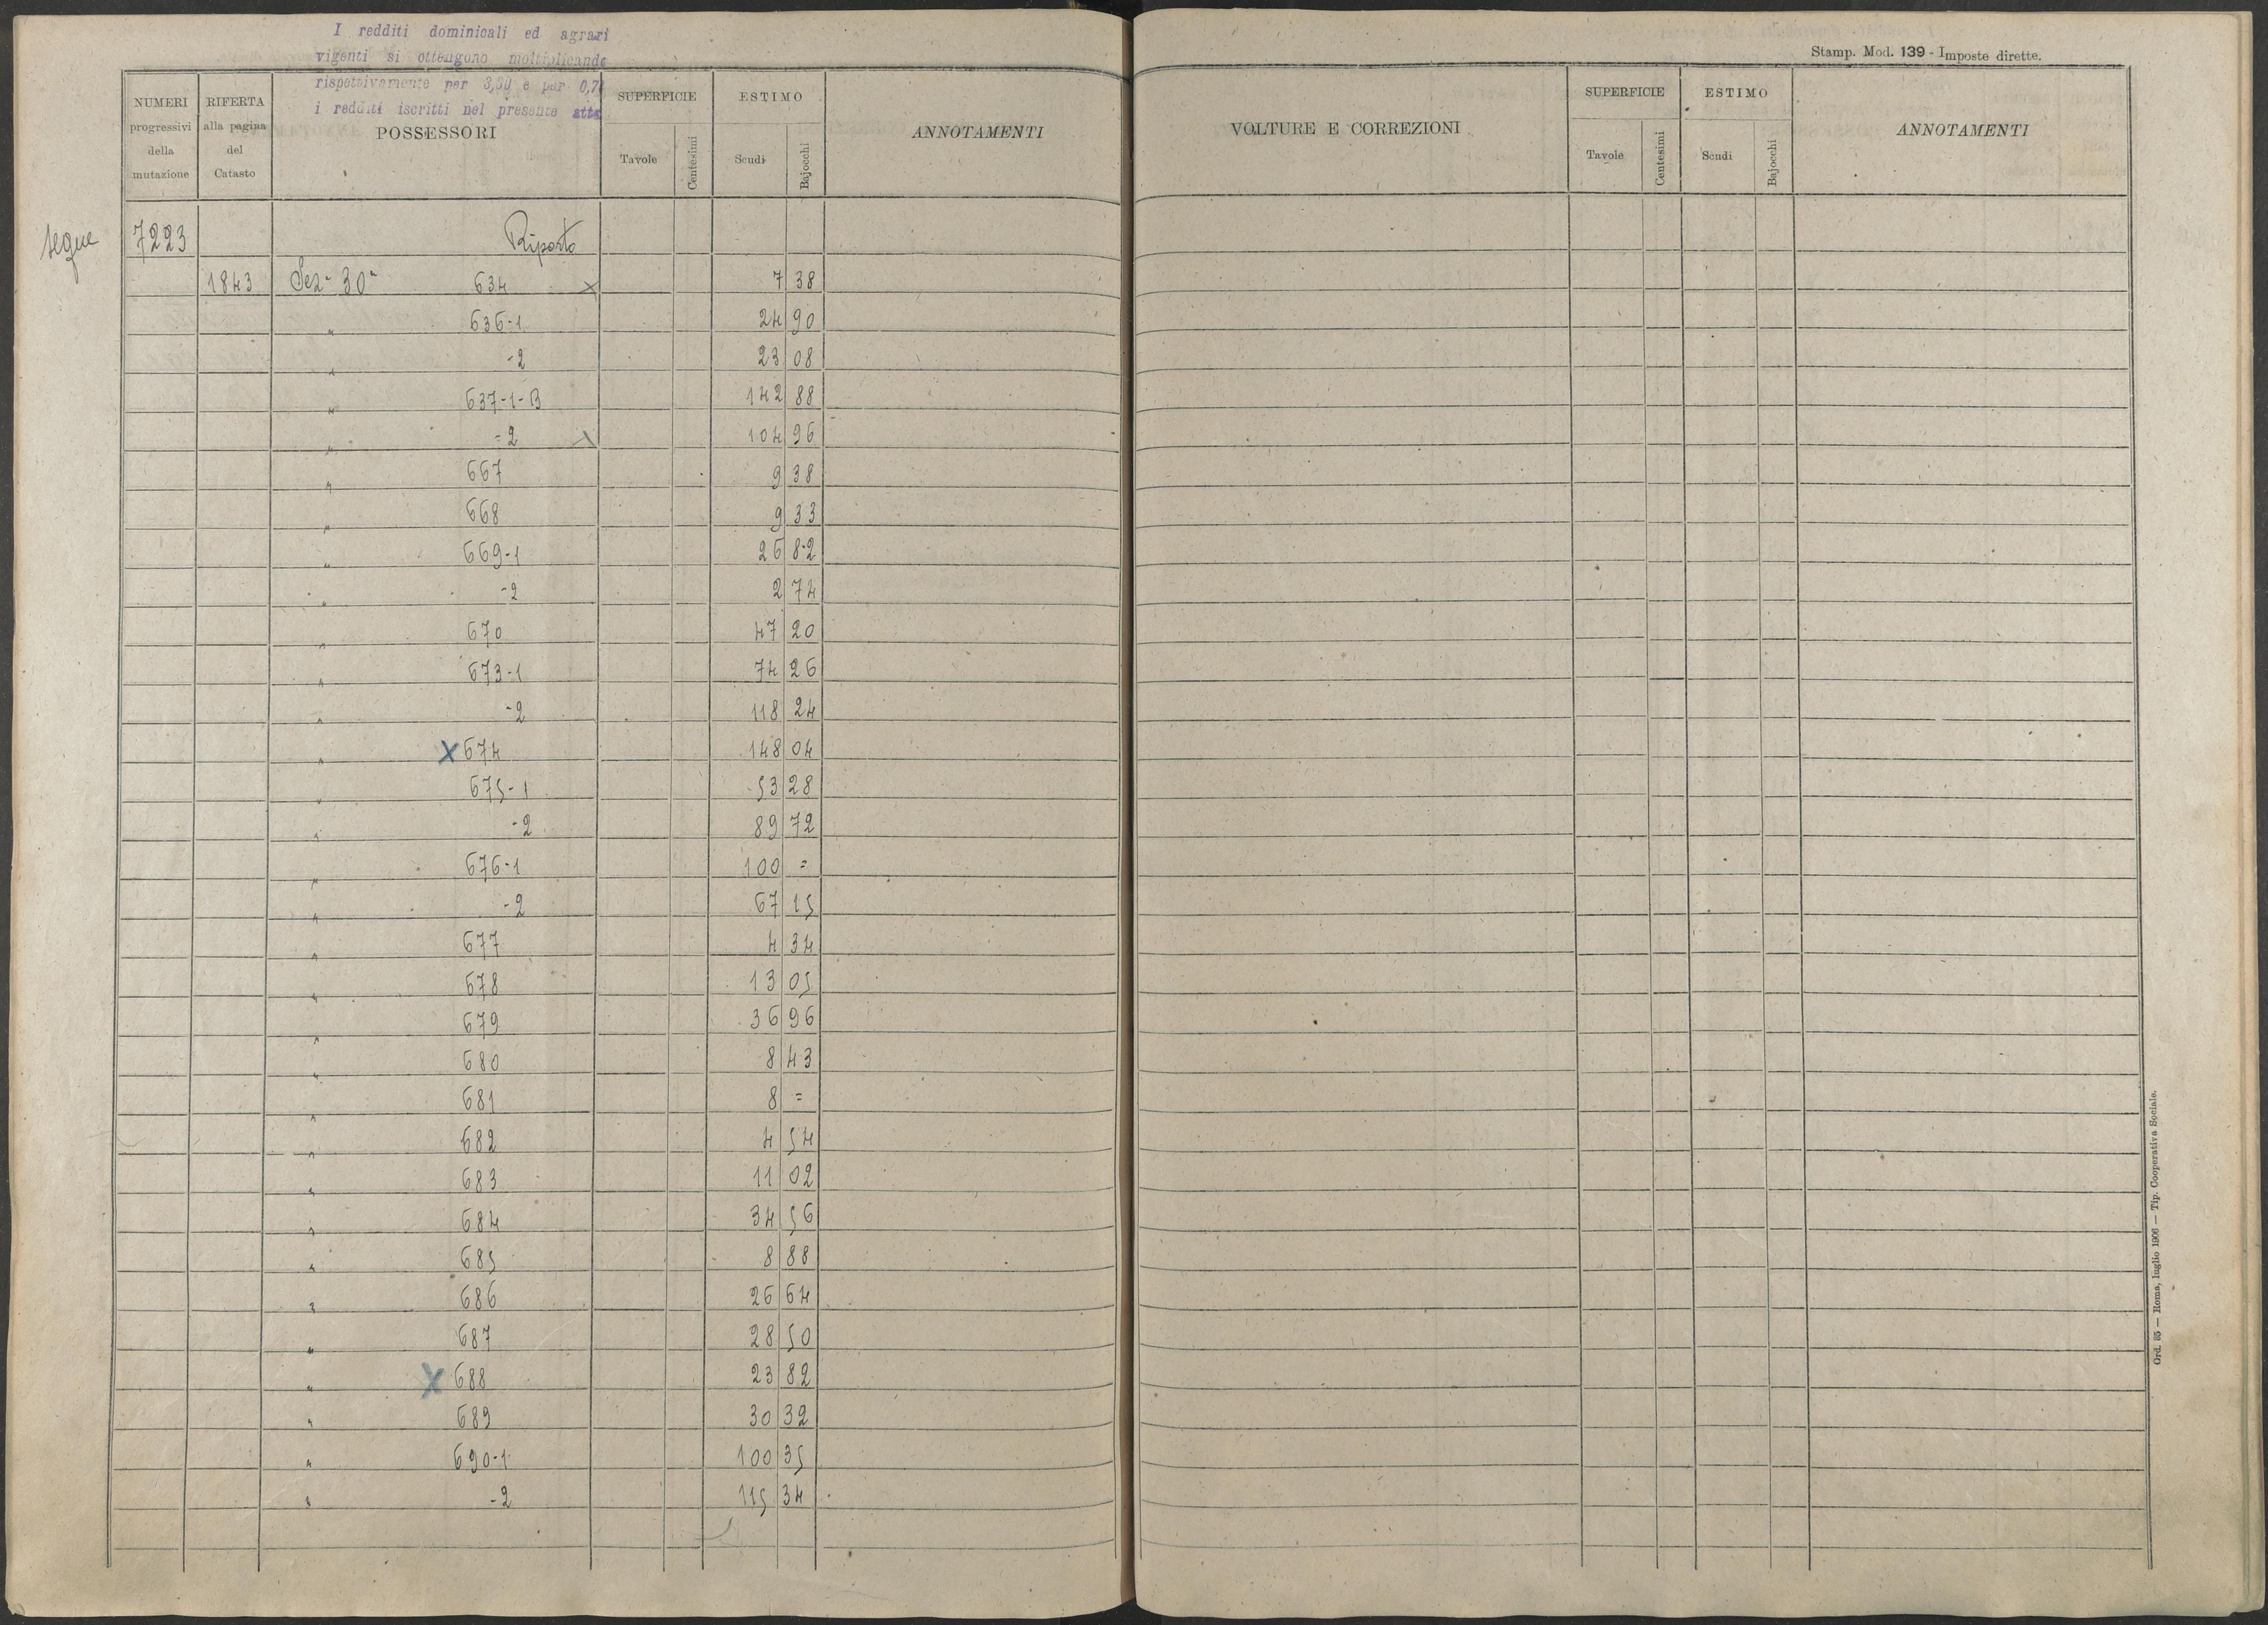 I redditi dominicali ed agrari
vigenti si ottengono moltiplicando
rispettivamente per 3,30 e per 0,7
i redditi iscritti nel presente atto
Stamp. Mod. 139 - Imposte dirette.
NUMERI progressivi della mutazione | RIFERTA alla pagina del Catasto | POSSESSORI | SUPERFICIE Tavole Centesimi | ESTIMO Scudi Bajocchi | ANNOTAMENTI
VOLTURE E CORREZIONI | SUPERFICIE Tavole Centesimi | ESTIMO Scudi Bajocchi | ANNOTAMENTI
segue 7223 Riposto
1843 Sez- 30ª 634 x 7 38
" 636-1 24 90
" -2 23 08
" 637-1-B 142 88
" =2 104 96
" 667 9 38
" 668 9 33
" 669-1 26 82
" -2 2 74
" 670 47 20
" 673-1 74 26
" -2 118 24
" X 674 148 04
" 675-1 53 28
" -2 89 72
" 676-1 100 =
" -2 67 15
" 677 4 34
" 678 13 05
" 679 36 96
" 680 8 43
" 681 8 =
" 682 4 54
" 683 11 02
" 684 34 56
" 685 8 88
" 686 26 64
" 687 28 50
" X 688 23 82
" 689 30 32
" 690-1 100 35
" -2 115 34
Ord. 85 — Roma, luglio 1906 — Tip. Cooperativa Sociale.